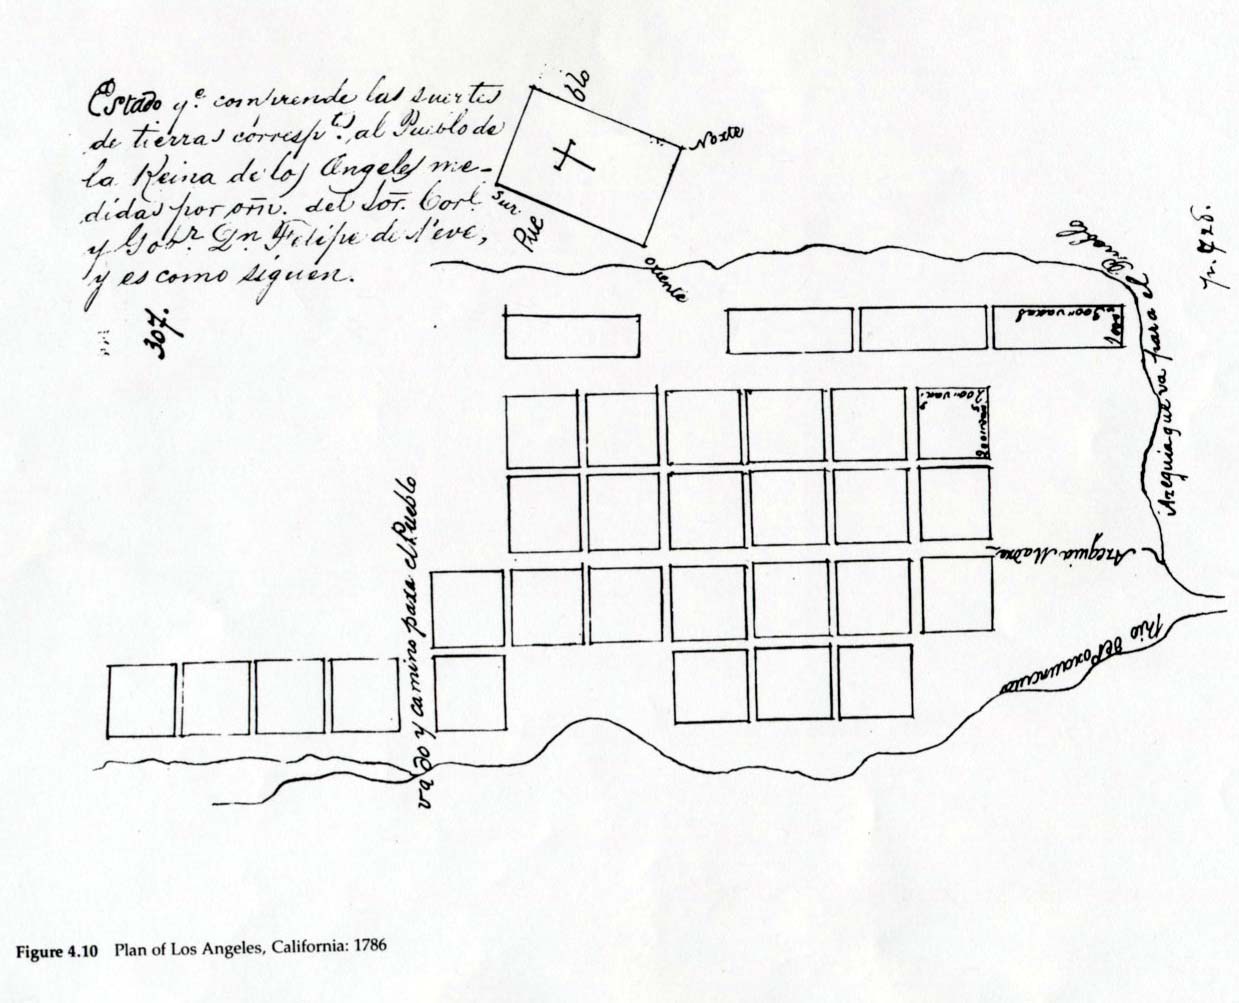 Estado q.e comprende las suertes
de tierras corresp.tes al Pueblo de
la Reina de los Angeles me-
didas por orñ. del Sor. Corl.
y Gobr. Dn. Felipe de Neve,
y es como siguen.
307.
Pueblo
Norte
Sur
Oriente
Azequia que va para el Pueblo
pr. 728.
300 varas
100 vs
200 van.s
200 varas
Azequia Madre
Rio de Porciuncula
vado y camino para el Pueblo
Figure 4.10 Plan of Los Angeles, California: 1786